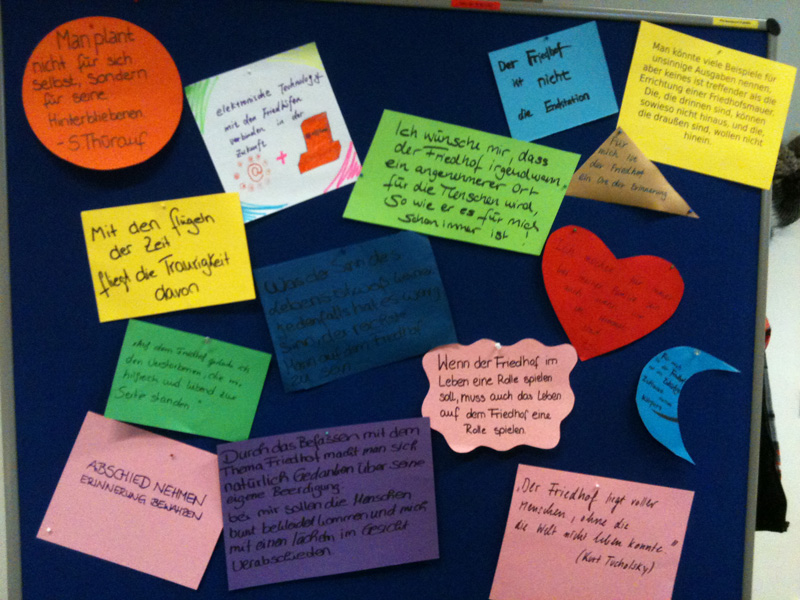 Man plant
nicht für sich
selbst, sondern
für seine
Hinterbliebenen
- S. Thürauf
elektronische Technologie
mit den Friedhöfen
verbunden in der
Zukunft
@ +
Der Friedhof
ist nicht
die Endstation
Man könnte viele Beispiele für
unsinnige Ausgaben nennen,
aber keines ist treffender als die
Errichtung einer Friedhofsmauer.
Die, die drinnen sind, können
sowieso nicht hinaus, und die,
die draußen sind, wollen nicht
hinein.
Ich wünsche mir, dass
der Friedhof irgendwann
ein angenehmerer Ort
für die Menschen wird,
So wie er es für mich
schon immer ist!
Für
mich ist
der Friedhof
ein Ort der Erinnerung
Mit den flügeln
der Zeit
fliegt die Traurigkeit
davon
Was der Sinn des
Lebens
hat es wenig
Sinn, der reichste
Mann auf dem Friedhof
zu sein
Auf dem Friedhof
den Verstorbenen, die mir
hilfreich und liebend zur
Seite standen
Wenn der Friedhof im
Leben eine Rolle spielen
soll, muss auch das Leben
auf dem Friedhof eine
Rolle spielen.
ABSCHIED NEHMEN
ERINNERUNG BEWAHREN
Durch das Befassen mit dem
Thema Friedhof macht man sich
natürlich Gedanken über seine
eigene Beerdigung.
bei mir sollen die Menschen
bunt bekleidet kommen und mich
mit einen lächeln im Gesicht
Verabschieden.
"Der Friedhof liegt voller
Menschen, ohne die
die Welt nicht leben konnte."
(Kurt Tucholsky)